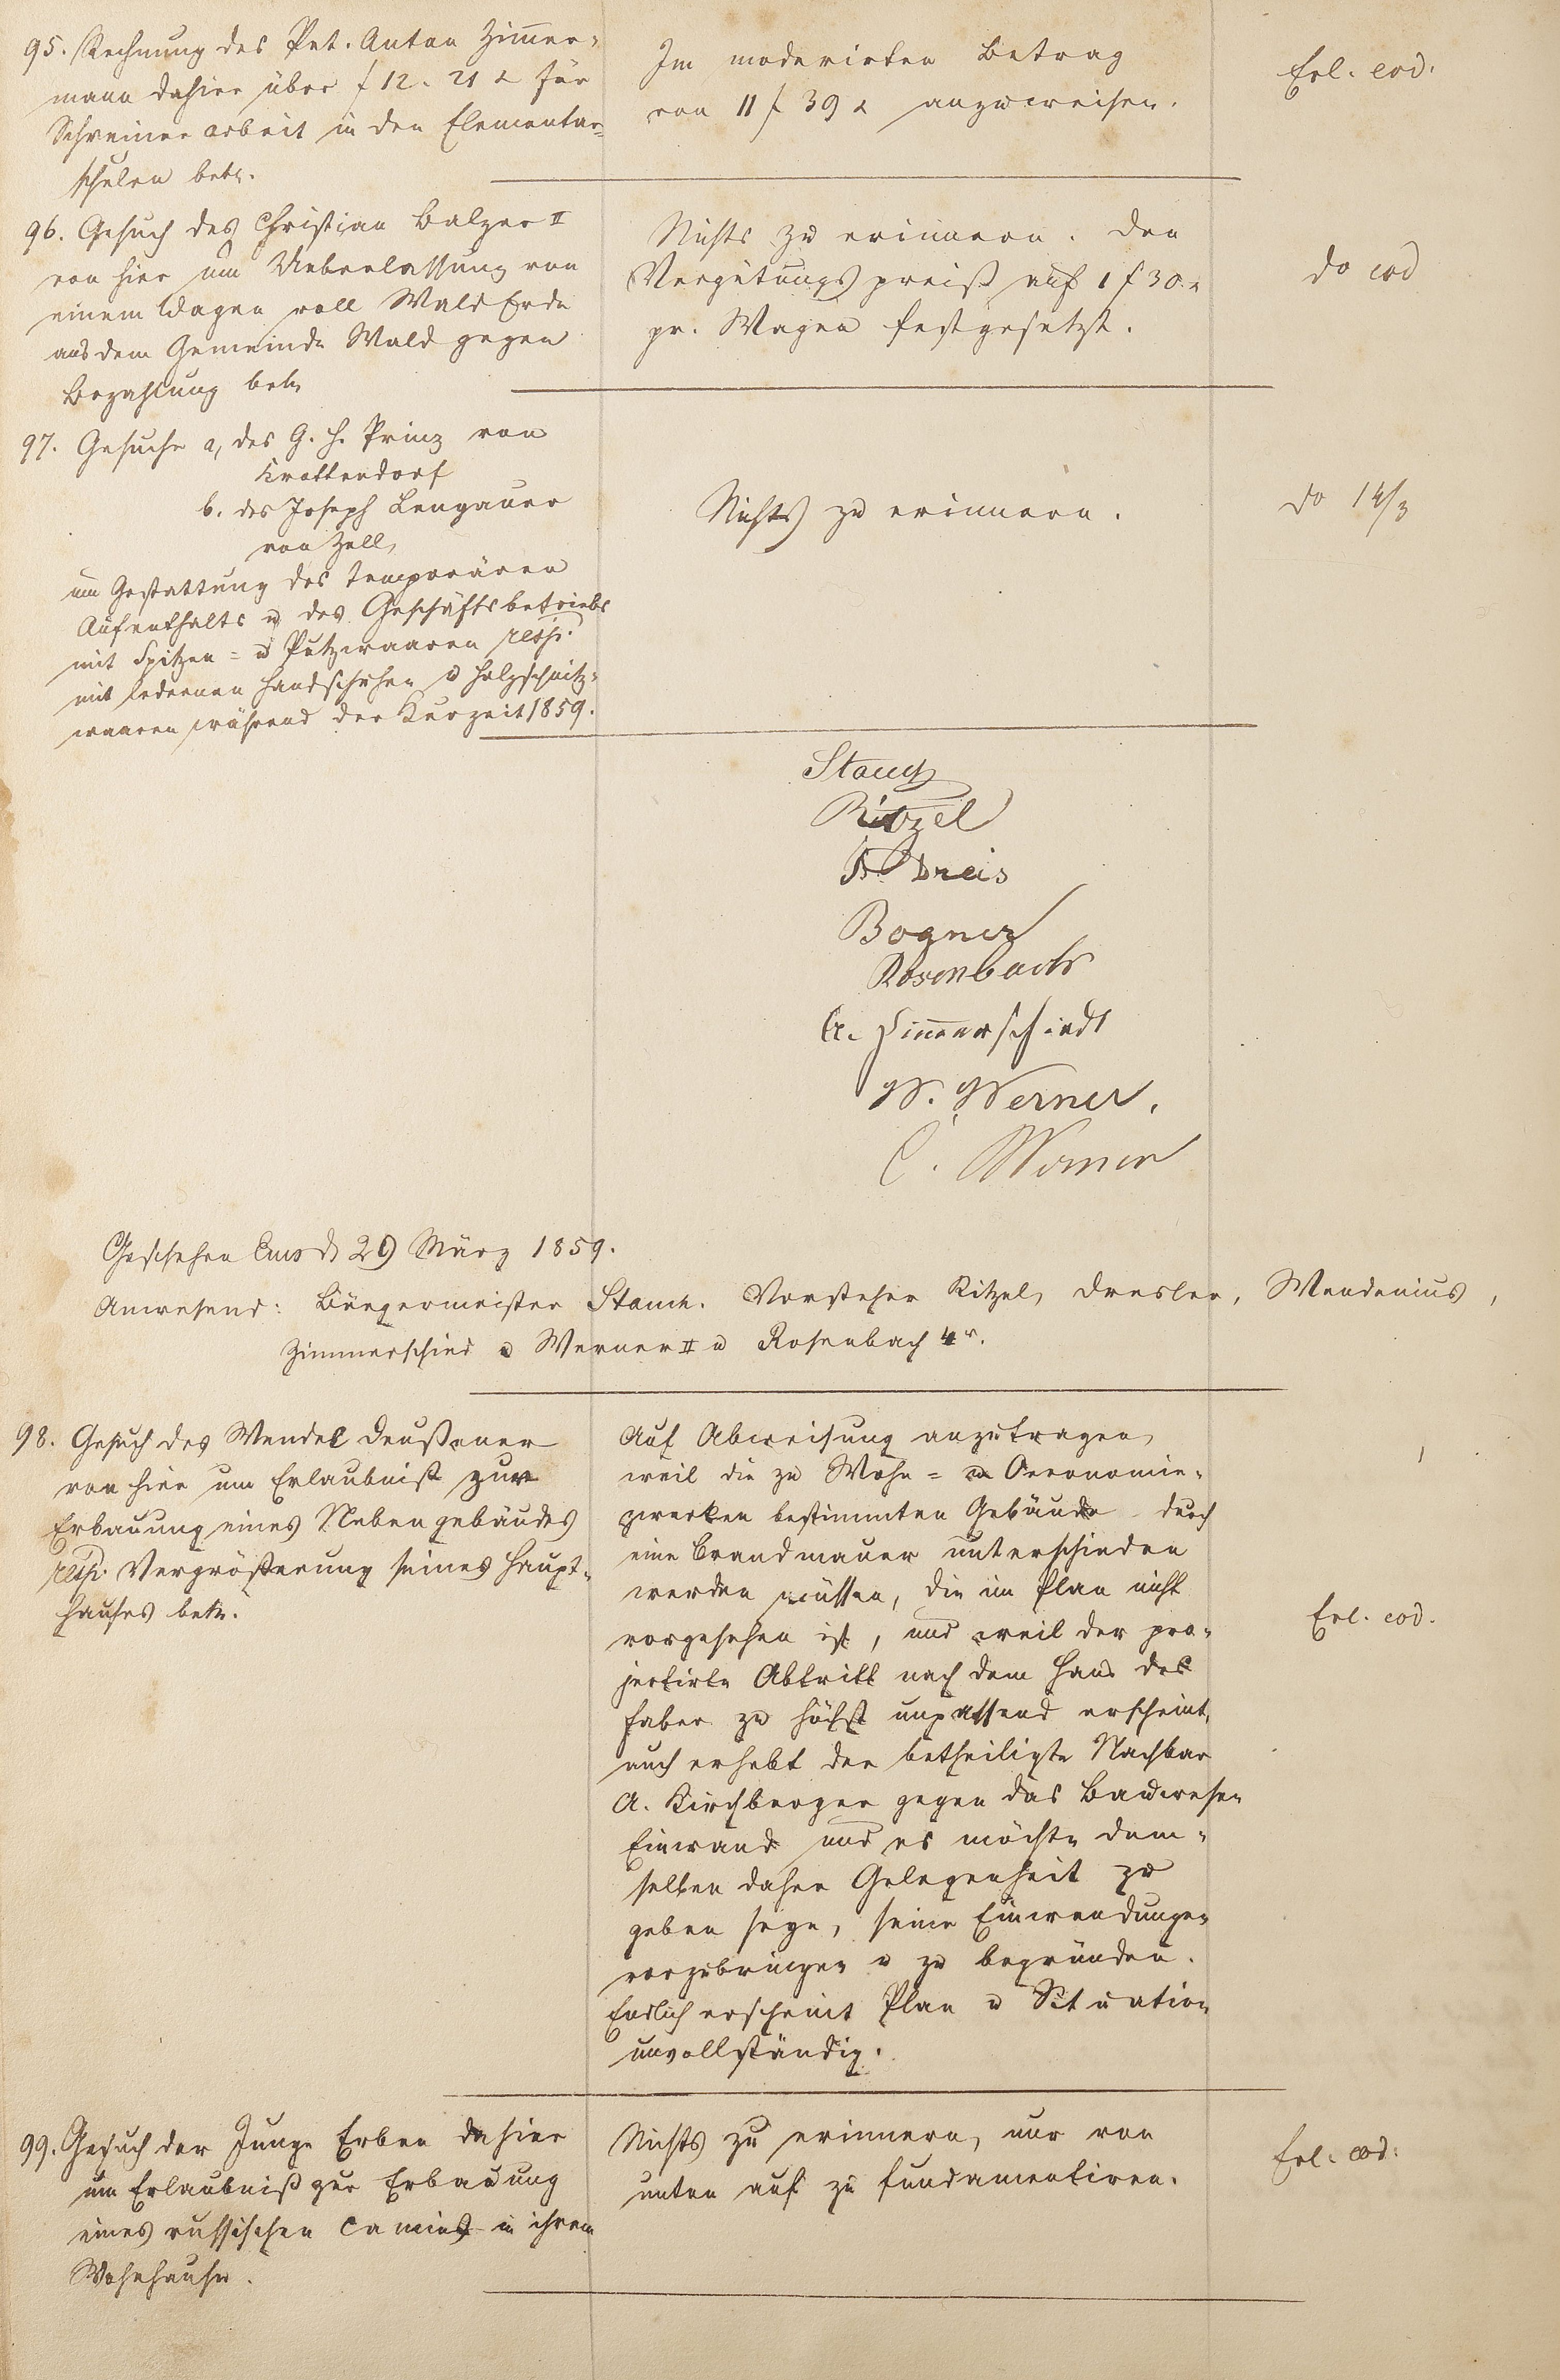 95. Rechnung des Pet. Anton Zimer-
mann dahier über f 12. 21 x für
Schreiner arbeit in den Elementar=
schulen betr.
Im moderirten Betrag
von 11 f 39 x anzuweisen.
Erl. eod.
96. Gesuch des Christian Balzer II
von hier um Ueberlassung von
einem Wagen voll Wald Erde
aus dem Gemeinde Wald gegen
Bezahlung betr
Nichts zu erinnern. Der
Vergütungspreiß auf 1 f 30 x
pr. Wagen festgesetzt.
do eod
97. Gesuche a, des G. H. Prinz von
Krottendorf
b. des Joseph Lengauer
von Zell,
um Gestattung des temporären
Aufenthalts u des Geschäftsbetriebs
mit Spitzen= u Putzwaaren resp.
mit ledernen Handschuhen u Holzschnitz-
waaren während der Kurzeit 1859.
Nichts zu erinnern.
do 14/3
Stauch
Ritzel
Dreis
Bogner
Rosenbach
A. Zimerschiedt
W. Werner.
C. Werner
Geschehen Ems d 29 März 1859.
Anwesend: Bürgermeister Stauch. Vorsteher Ritzel, Dresler, Wendenius,
Zimmerschied u Werner II u Rosenbach 4r.
98. Gesuch des Wendel Deußener
von hier um Erlaubniß zur
Erbauung eines Nebengebäudes
resp. Vergrößerung seines Haupt-
hauses betr.
Auf Abweisung anzutragen,
weil die zu Wohn= u Oeconomie-
zwecken bestimmten Gebäude durch
eine Brandmauer unterschieden
werden müssen, die im Plan nicht
vorgesehen ist, und weil der pro-
jectirte Abtritt nach dem Haus des
Faber zu höchst unpassend erscheint,
auch erhebt der betheiligte Nachbar
A. Kirchberger gegen das Bauwesen
Einwand und es möchte dem-
selben daher Gelegenheit zu
geben seyn, seine Einwendungen
vorzubringen u zu begründen.
Endlich erscheint Plan u Situation
unvollständig.
Erl. eod.
99. Gesuch der Junge Erben dahier
um Erlaubniß zur Erbauung
eines russischen Camins in ihrem
Wohnhause.
Nichts zu erinnern, nur von
unten auf zu fundamentiren.
Erl. eod.